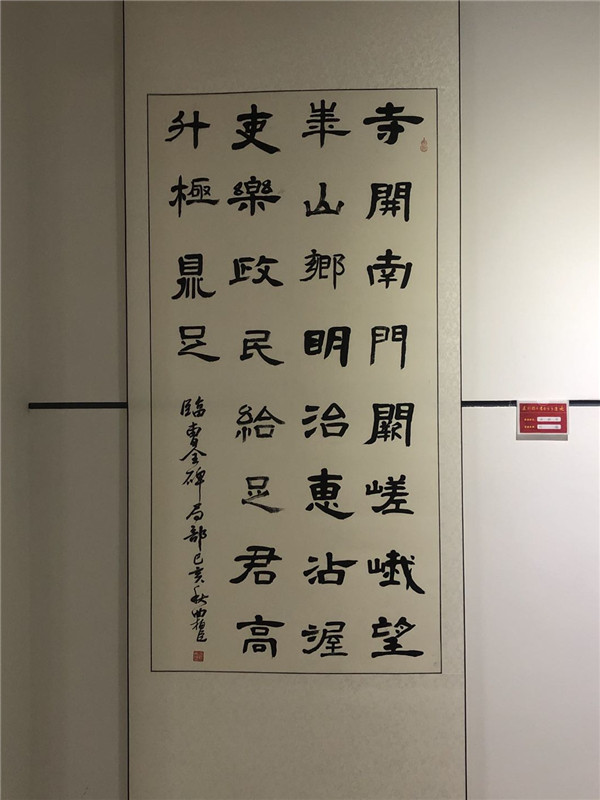 寺開南門闕嵯峨望
華山鄉明治惠沾渥
吏樂政民給足君高
升極鼎足
臨曹全碑局部己亥秋